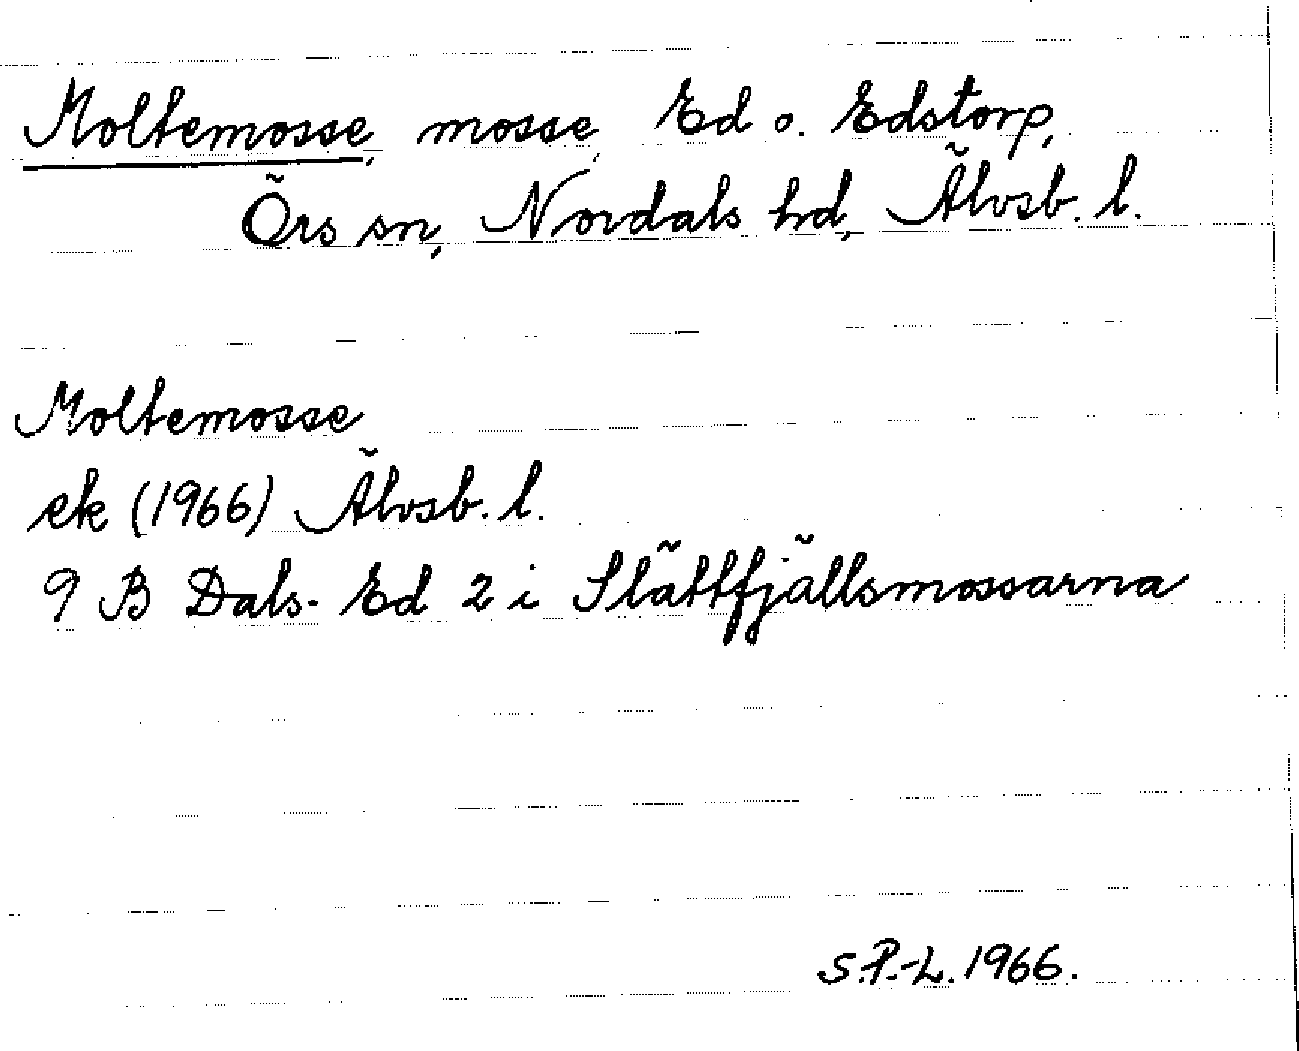 Moltemosse, mosse, Ed o. Edstorp,
Örs sn, Nordals hd, Älvsb. l.
Moltemosse
ek (1966) Älvsb. l.
9 B Dals-Ed 2 i Slättfjällsmossarna
S.P.-L. 1966.